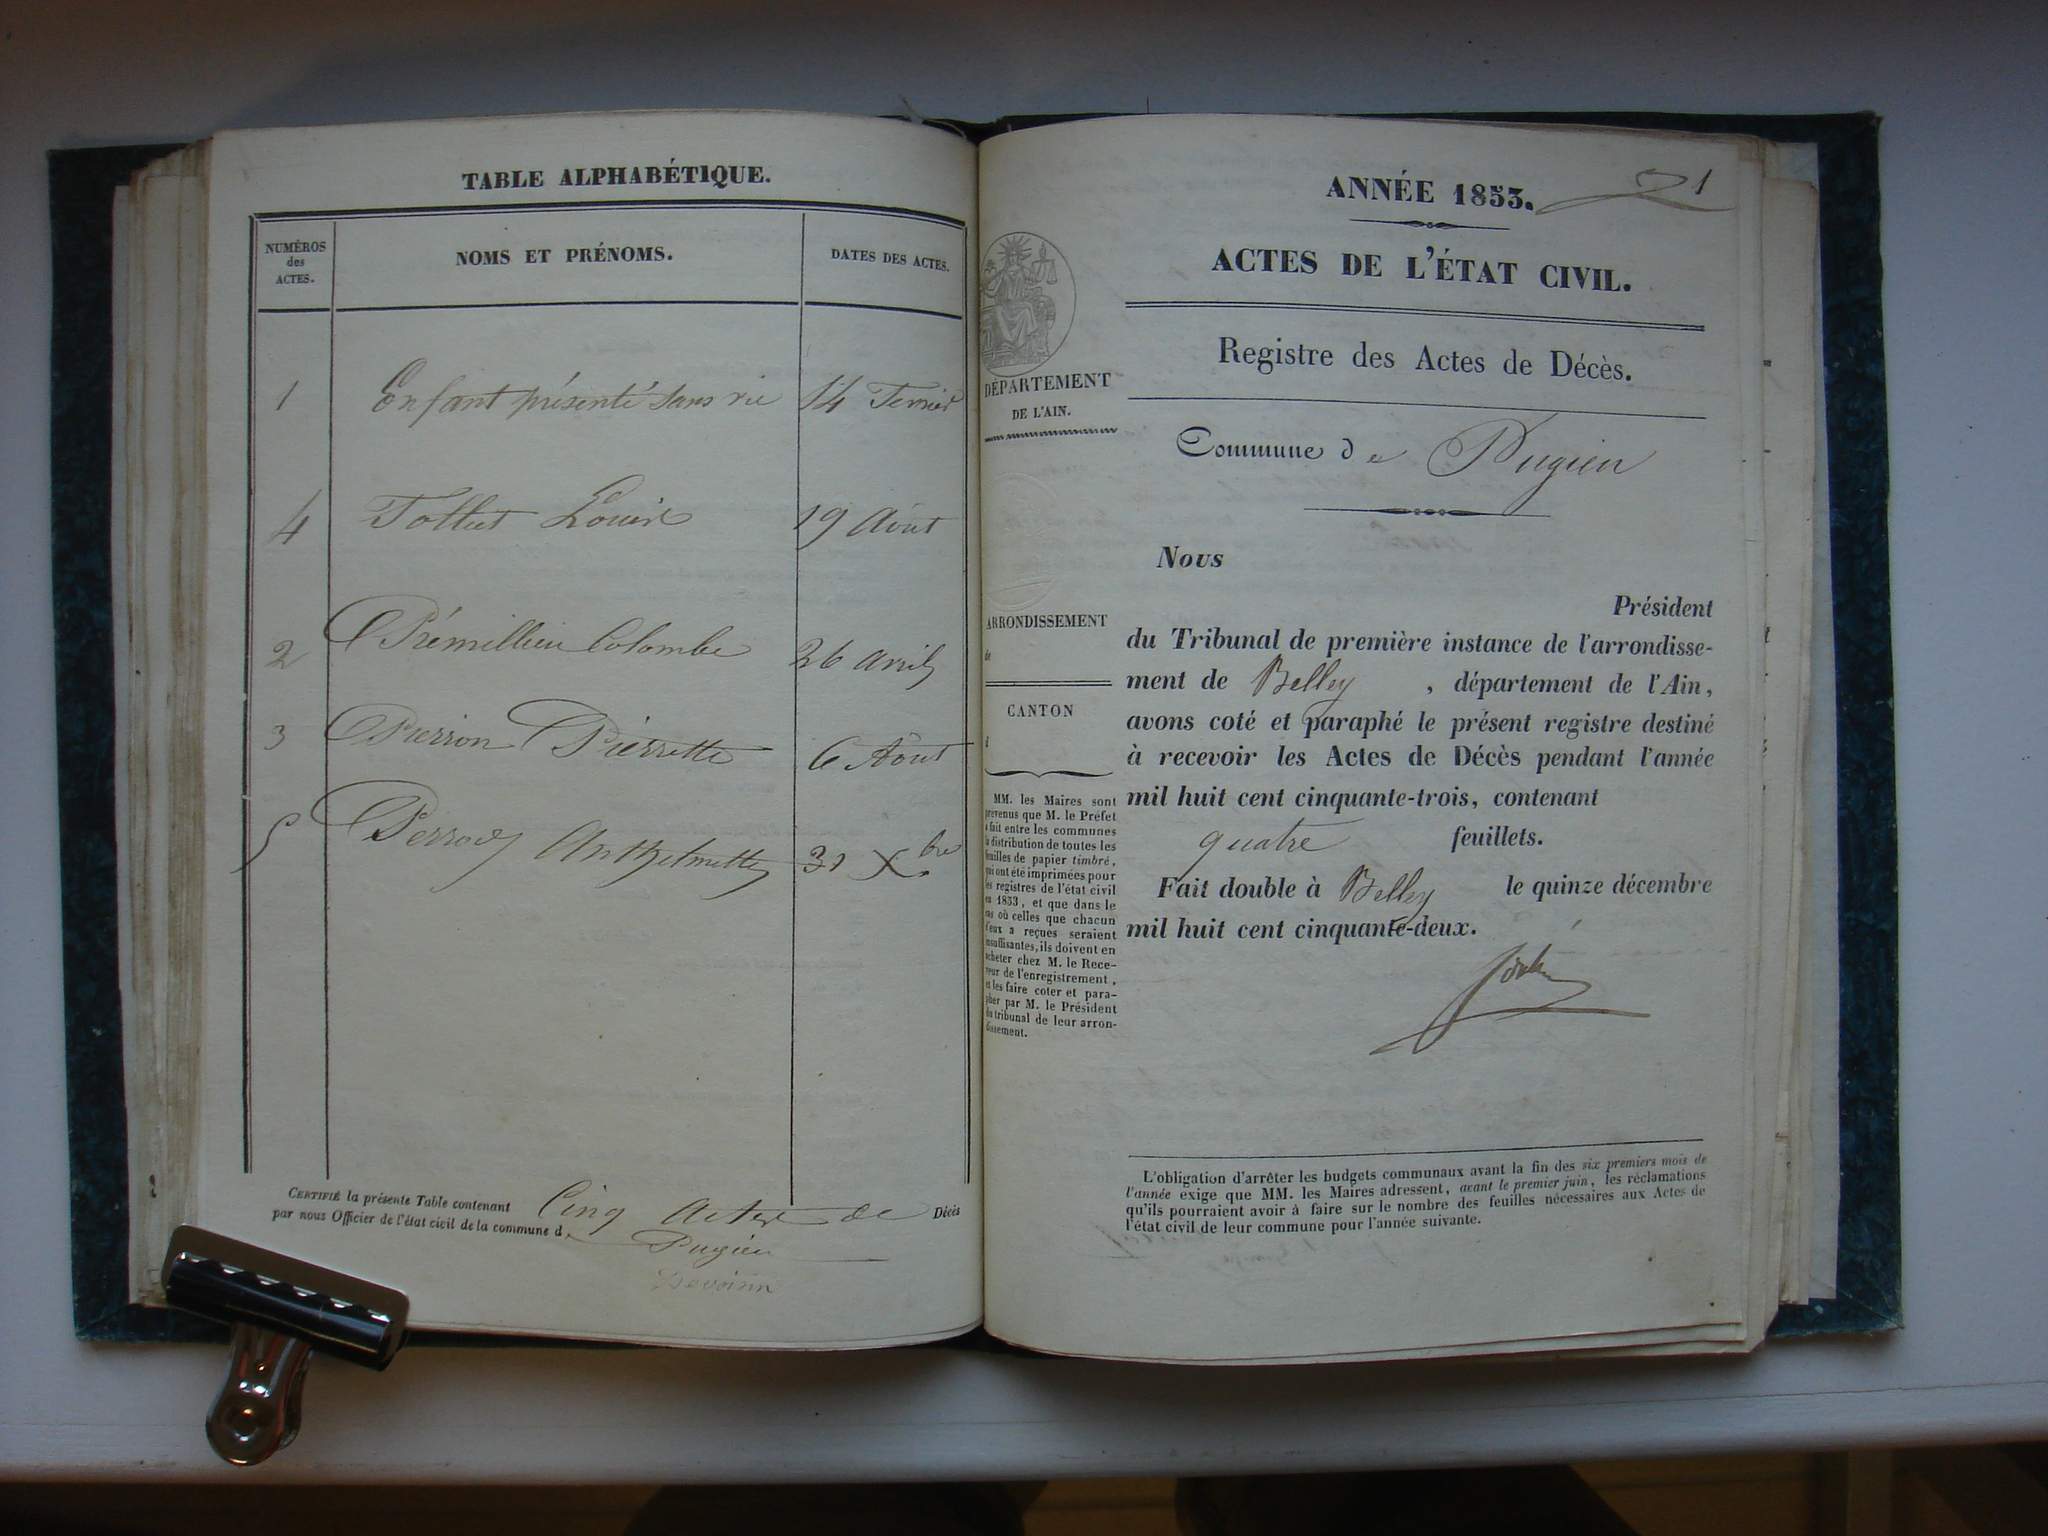 TABLE ALPHABÉTIQUE.
NUMÉROS
des
ACTES.
NOMS ET PRÉNOMS.
DATES DES ACTES.
1 Enfant présenté sans vie 14
4 Louis 19 Août
2 Prémillieu Colombe 26 avril
3 Pierron Pierrette 6 Août
5 Anthelmette 31 Xbre
CERTIFIÉ la présente Table contenant Cinq Actes de Décès
par nous Officier de l'état civil de la commune de
Pugieu
1
ANNÉE 1853.
ACTES DE L'ÉTAT CIVIL.
Registre des Actes de Décès.
Commune de Pugieu
DÉPARTEMENT
DE L'AIN.
ARRONDISSEMENT
de
CANTON
d
MM. les Maires sont
prévenus que M. le Préfet
a fait entre les communes
la distribution de toutes les
feuilles de papier timbré,
qui ont été imprimées pour
les registres de l'état civil
en 1853, et que dans le
cas où celles que chacun
d'eux a reçues seraient
insuffisantes, ils doivent en
acheter chez M. le Rece-
veur de l'enregistrement,
et les faire coter et para-
pher par M. le Président
du tribunal de leur arron-
dissement.
Nous
Président
du Tribunal de première instance de l'arrondisse-
ment de Belley, département de l'Ain,
avons coté et paraphé le présent registre destiné
à recevoir les Actes de Décès pendant l'année
mil huit cent cinquante-trois, contenant
quatre feuillets.
Fait double à Belley le quinze décembre
mil huit cent cinquante-deux.
L'obligation d'arrêter les budgets communaux avant la fin des six premiers mois de
l'année exige que MM. les Maires adressent, avant le premier juin, les réclamations
qu'ils pourraient avoir à faire sur le nombre des feuilles nécessaires aux Actes de
l'état civil de leur commune pour l'année suivante.